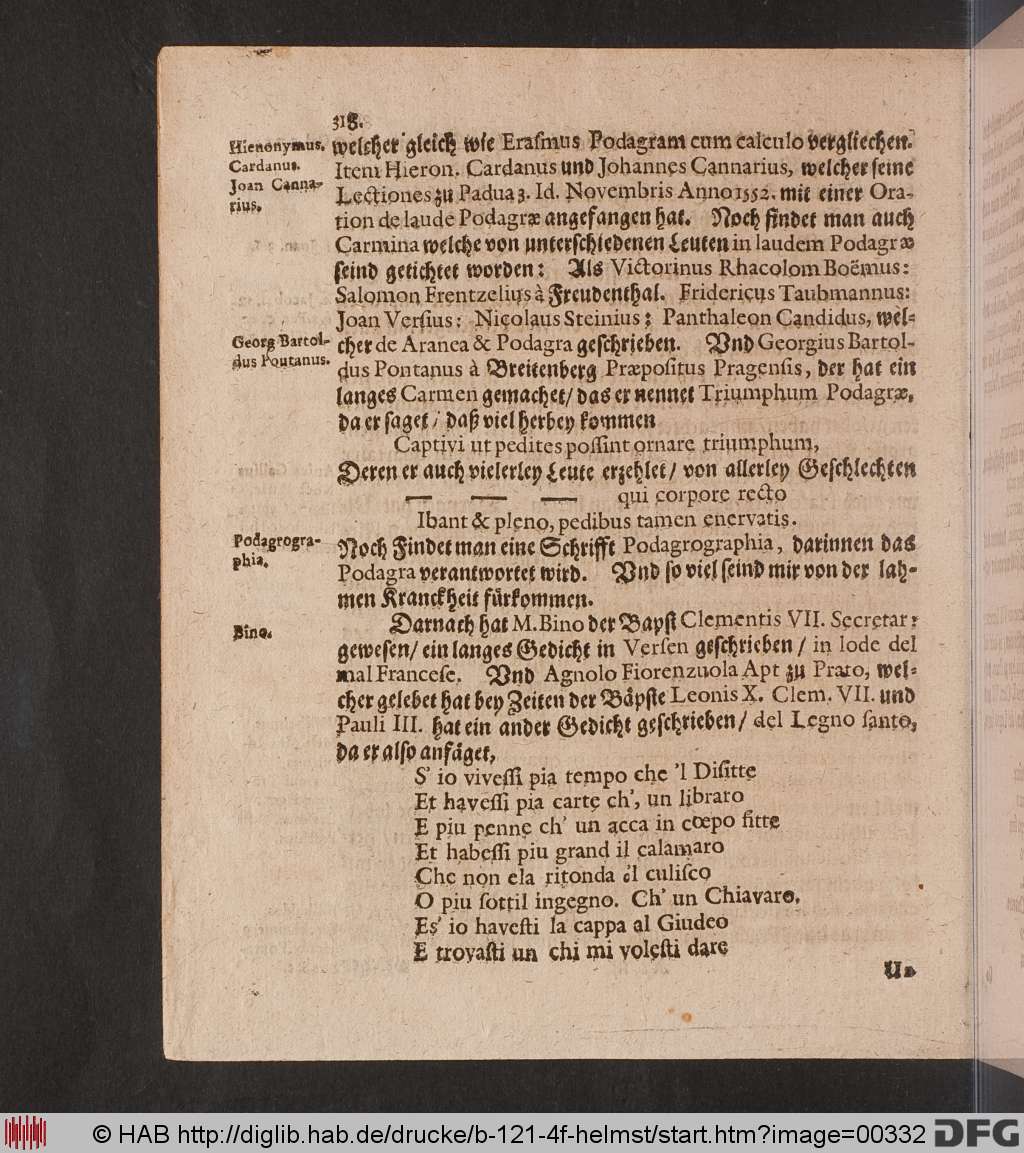 318.
Hienonymus.
Cardanus.
Joan Canna-
rius.
welcher gleich wie Eraſmus Podagram cum calculo vergliechen.
Item Hieron. Cardanus und Johannes Cannarius, welcher ſeine
Lectiones zu Padua 3. Id. Novembris Anno 1552. mit einer Ora-
tion de laude Podagræ angefangen hat. Noch findet man auch
Carmina welche von unterſchiedenen Leuten in laudem Podagræ
ſeind getichtet worden: Als Victorinus Rhacolom Boëmus:
Salomon Frentzelius à Freudenthal. Fridericus Taubmannus:
Joan Verſius: Nicolaus Steinius: Panthaleon Candidus, wel-
Georg Bartol-
dus Poutanus.
cher de Aranea & Podagra geſchrieben. Vnd Georgius Bartol-
dus Pontanus à Breitenberg Præpoſitus Pragenſis, der hat ein
langes Carmen gemachet/ das er nennet Triumphum Podagræ,
da er ſaget/ daß viel herbey kommen
Captivi ut pedites poſſint ornare triumphum,
Deren er auch vielerley Leute erzehlet/ von allerley Geſchlechten
— — — qui corpore recto
Ibant & pleno, pedibus tamen enervatis.
Podagrogra-
phia.
Noch Findet man eine Schrifft Podagrographia, darinnen das
Podagra verantwortet wird. Vnd ſo viel ſeind mir von der lah-
men Kranckheit fürkommen.
Bino.
Darnach hat M. Bino der Bapſt Clementis VII. Secretar:
geweſen/ ein langes Gedicht in Verſen geſchrieben/ in lode del
mal Franceſe. Vnd Agnolo Fiorenzuola Apt zu Prato, wel-
cher gelebet hat bey Zeiten der Bäpſte Leonis X. Clem. VII. und
Pauli III. hat ein ander Gedicht geſchrieben/ del Legno ſanto,
da er alſo anfäget,
S' io viveſſi pia tempo che 'l Diſitte
Et haveſſi pia carte ch', un libraro
E piu penne ch' un acca in cœpo fitte
Et habeſſi piu grand il calamaro
Che non ela ritonda èl culiſeo
O piu ſottil ingegno. Ch' un Chiavaro.
Es' io haveſti la cappa al Giudeo
E trovaſti un chi mi voleſti dare
U-
© HAB http://diglib.hab.de/drucke/b-121-4f-helmst/start.htm?image=00332
DFG